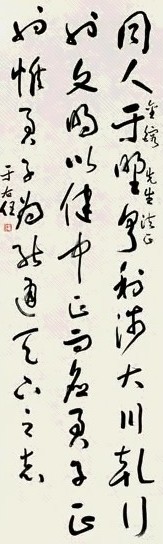 同人于野亨利涉大川乾行
先生法正
也文明以健中正而應君子正
也惟君子為能通天下之志
于右任